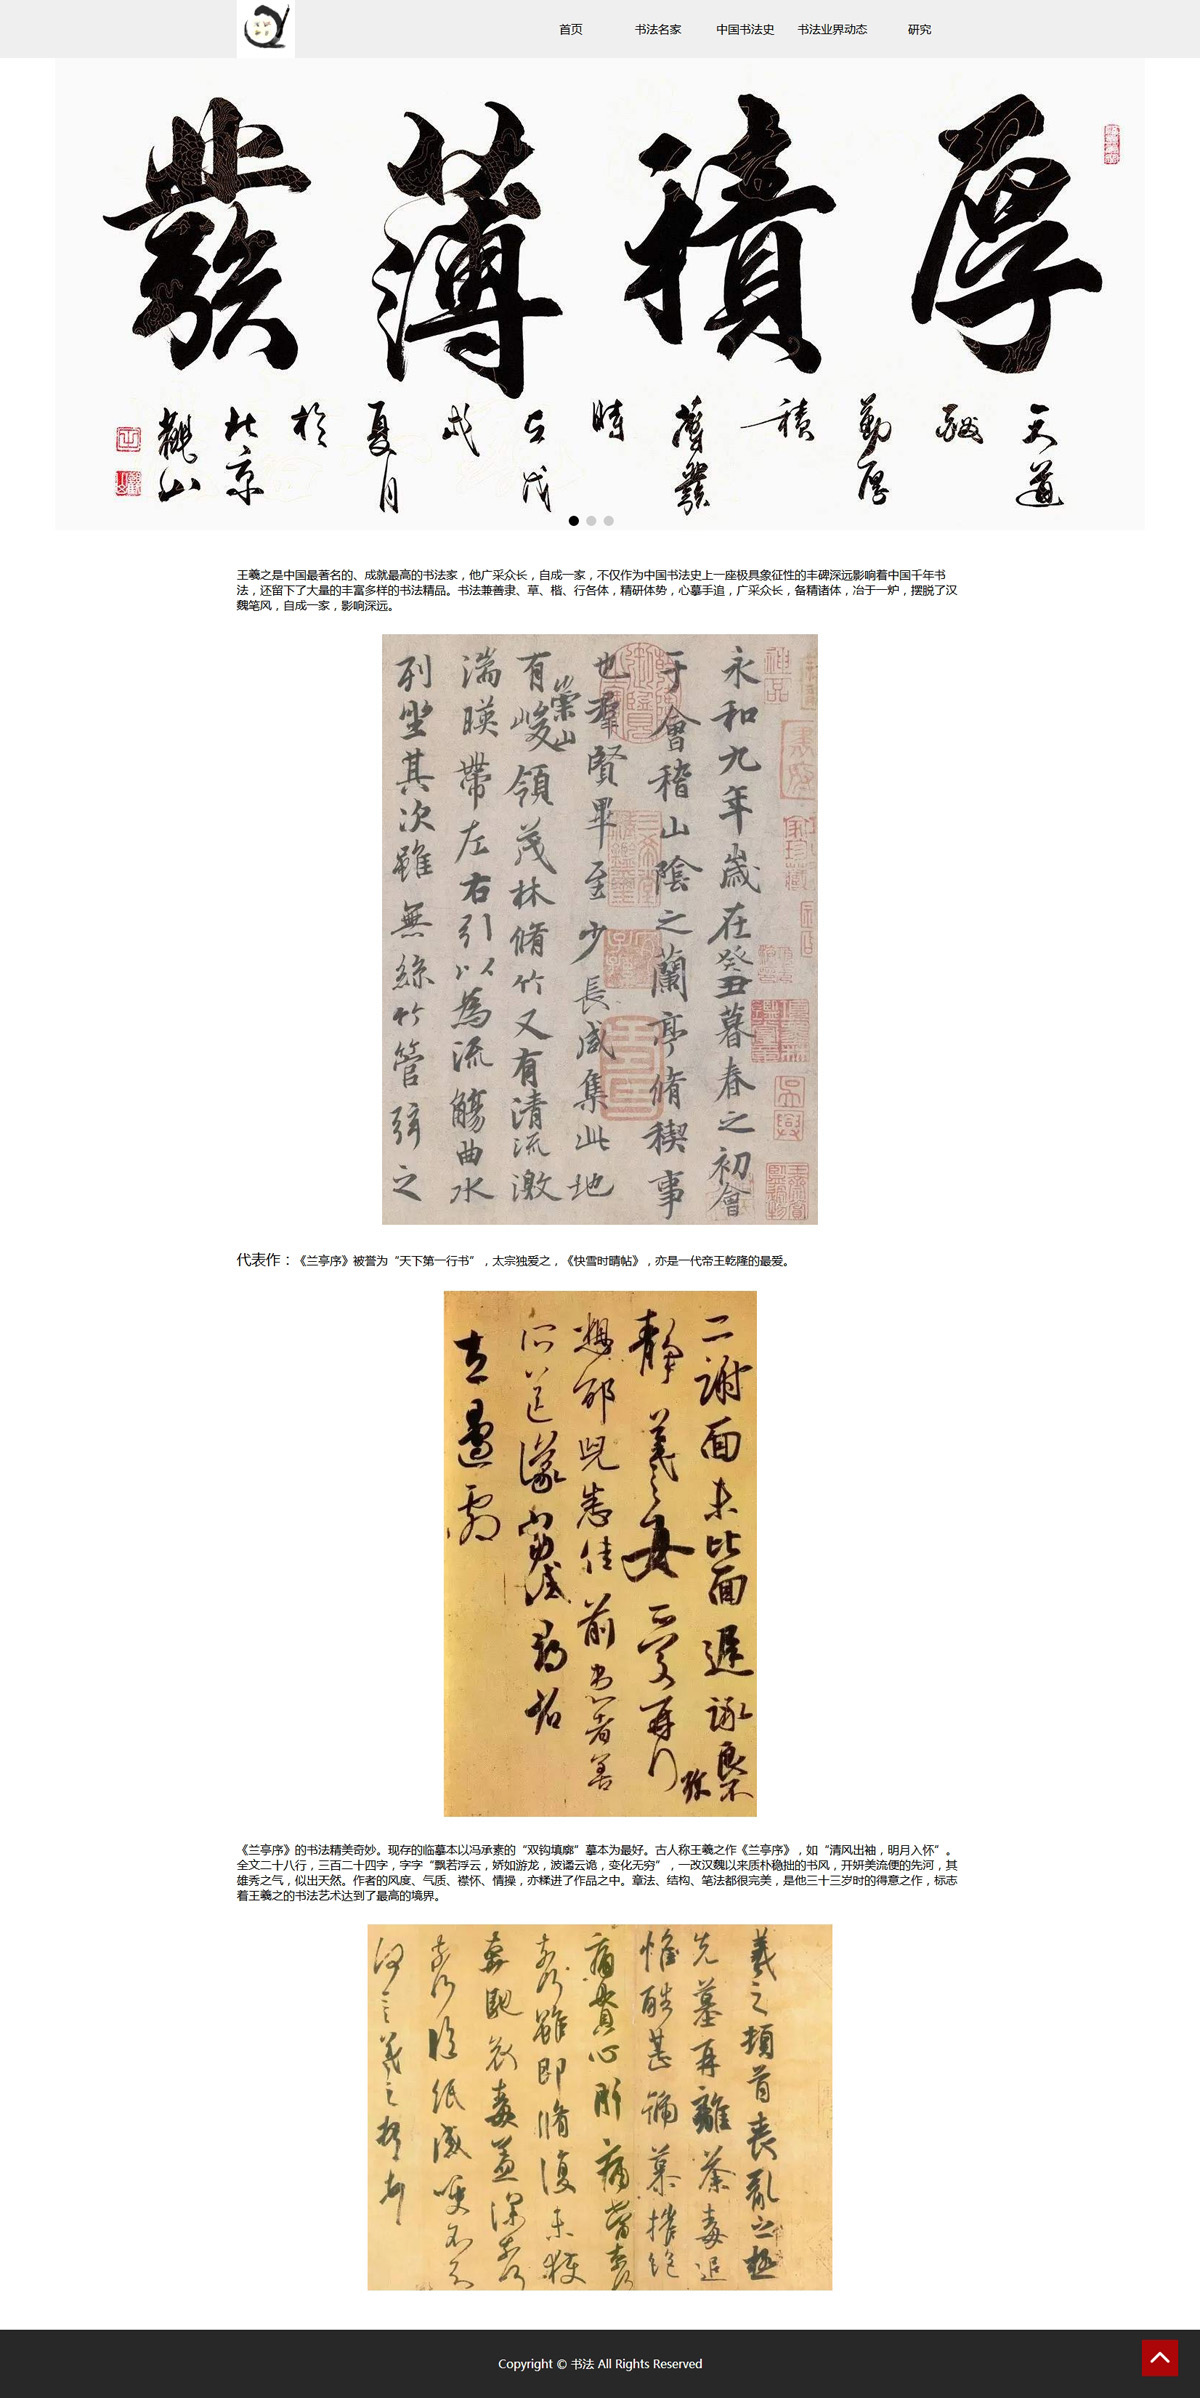 首页 书法名家 中国书法史 书法业界动态 研究
厚積薄發
天道
酬
勤厚
積
薄發
時
戊
夏月
於
北京
王羲之是中国最著名的、成就最高的书法家，他广采众长，自成一家，不仅作为中国书法史上一座极具象征性的丰碑深远影响着中国千年书
法，还留下了大量的丰富多样的书法精品。书法兼善隶、草、楷、行各体，精研体势，心摹手追，广采众长，备精诸体，冶于一炉，摆脱了汉
魏笔风，自成一家，影响深远。
永和九年歲在癸丑暮春之初會
于會稽山陰之蘭亭脩稧事
也羣賢畢至少長咸集此地
有崇山峻領茂林脩竹又有清流激
湍暎帶左右引以為流觴曲水
列坐其次雖無絲竹管弦之
代表作：《兰亭序》被誉为“天下第一行书”，太宗独爱之，《快雪时晴帖》，亦是一代帝王乾隆的最爱。
二謝面未比面遲詠良不
靜羲之女愛再拜
想邰兒悉佳前患者善
所送議當試尋省
左邊劇
《兰亭序》的书法精美奇妙。现存的临摹本以冯承素的“双钩填廓”摹本为最好。古人称王羲之作《兰亭序》，如“清风出袖，明月入怀”。
全文二十八行，三百二十四字，字字“飘若浮云，娇如游龙，波谲云诡，变化无穷”，一改汉魏以来质朴稳拙的书风，开妍美流便的先河，其
雄秀之气，似出天然。作者的风度、气质、襟怀、情操，亦糅进了作品之中。章法、结构、笔法都很完美，是他三十三岁时的得意之作，标志
着王羲之的书法艺术达到了最高的境界。
羲之頓首喪亂之極
先墓再離荼毒追
惟酷甚號慕摧絕
痛貫心肝痛當奈何
奈何雖即脩復未獲
奔馳哀毒益深奈何
奈何臨紙感哽不知
何言羲之頓首
Copyright © 书法 All Rights Reserved